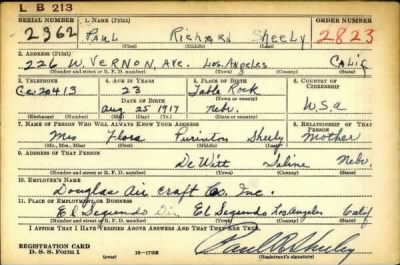 L B 213
SERIAL NUMBER 1. NAME (Print) ORDER NUMBER
2362 PAUL RICHARD Sheely 2823
(First) (Middle) (Last)
2. ADDRESS (Print)
226 W. VERNON, AVE. LOS. ANGELES CALIF
(Number and street or R. F. D. number) (Town) (County) (State)
3. TELEPHONE 4. AGE IN YEARS 5. PLACE OF BIRTH 6. COUNTRY OF CITIZENSHIP
Ce. 20413 23 Table Rock
DATE OF BIRTH (Town or county)
Aug 25 1917 Nebr. U.S.a
(Exchange) (Number) (Mo.) (Day) (Yr.) (State or country)
7. NAME OF PERSON WHO WILL ALWAYS KNOW YOUR ADDRESS 8. RELATIONSHIP OF THAT PERSON
Mrs Flora Purinton Sheely Mother
(Mr., Mrs., Miss) (First) (Middle) (Last)
9. ADDRESS OF THAT PERSON
De Witt Saline Nebr.
(Number and street or R. F. D. number) (Town) (County) (State)
10. EMPLOYER'S NAME
Douglas Air craft Co. Inc.
11. PLACE OF EMPLOYMENT OR BUSINESS
El Segundo Div El Segundo Los Angeles Calif
(Number and street or R. F. D. number) (Town) (County) (State)
I AFFIRM THAT I HAVE VERIFIED ABOVE ANSWERS AND THAT THEY ARE TRUE.
REGISTRATION CARD
D. S. S. Form 1 (over) 16—17105 (Registrant's signature)
Paul R Sheely